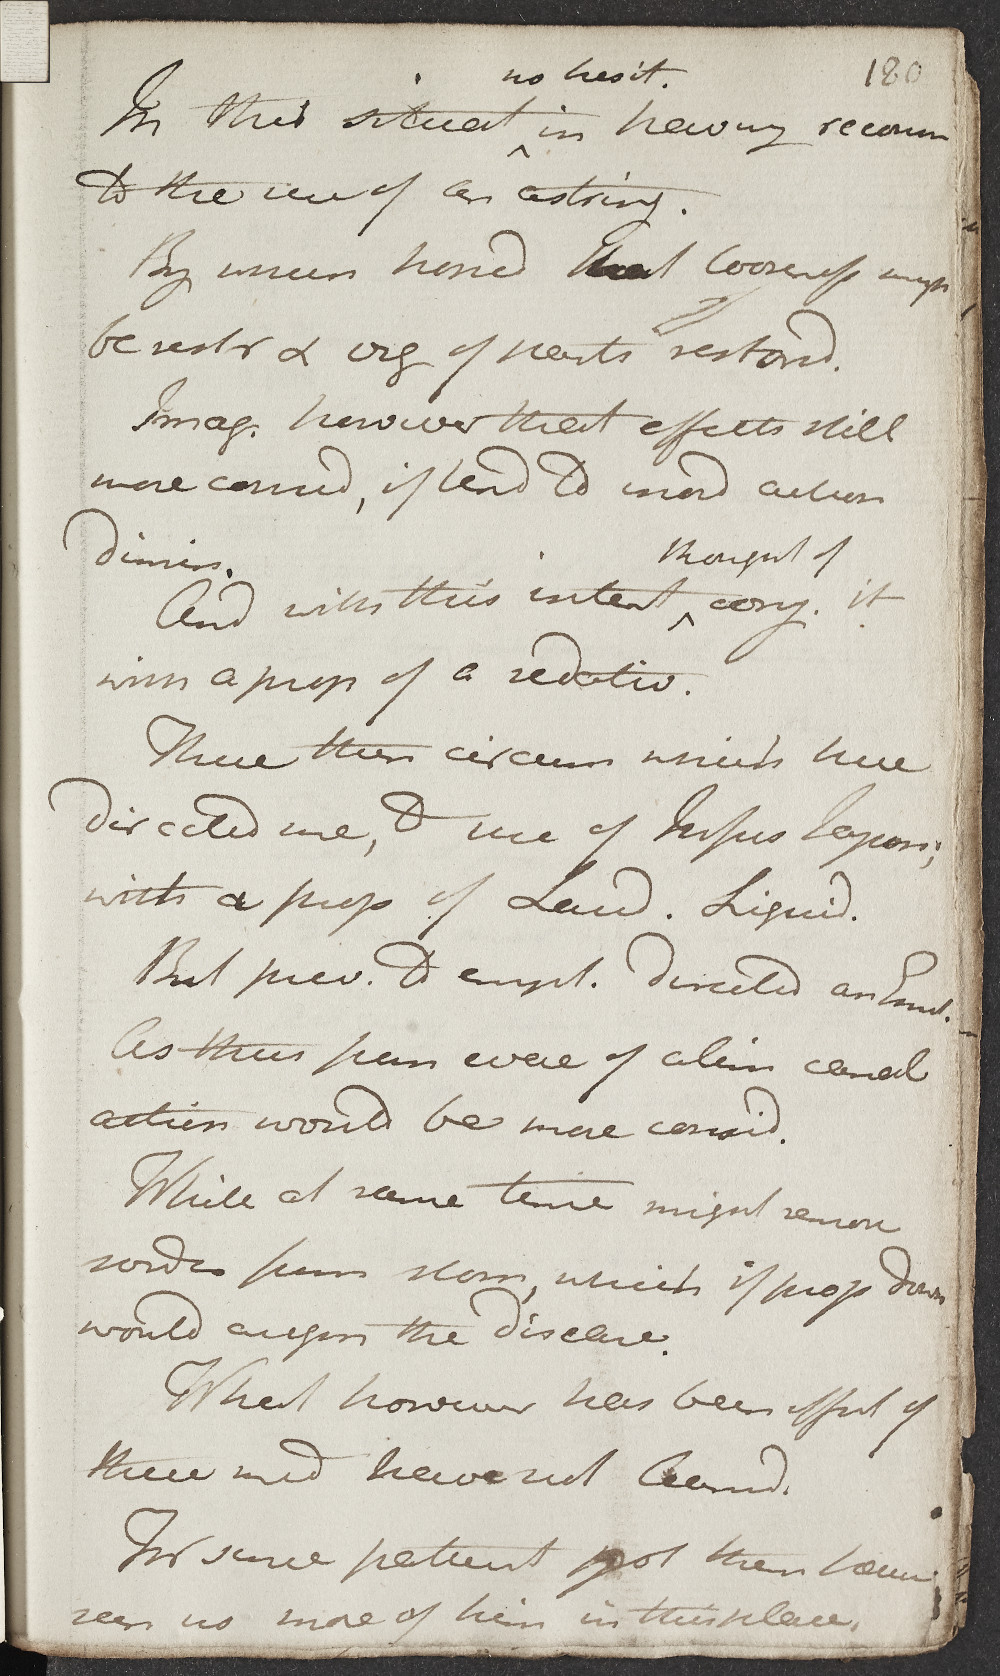 180
no hesit.
In this situat ^ in having recom
to the use of an astring.
By which hoped that looseness might
be restr & vig of parts restord.
Imag. however that effects still
more consid, if tend to inord action
dimin.
thought of
And with this intent ^ conj. it
with a prop of a sedativ.
These then circum which have
directed me, to use of Infus Japon;
with a prop of Laud. Liquid.
But prev. to empl. directed an Emet.
As thus from evac of alim canal
action would be more consid.
While at same time might remove
sordes from stom, which if prop down
would augm the disease.
What however has been effect of
these med have not learnd.
For since patient got them have
seen no more of him in this place.